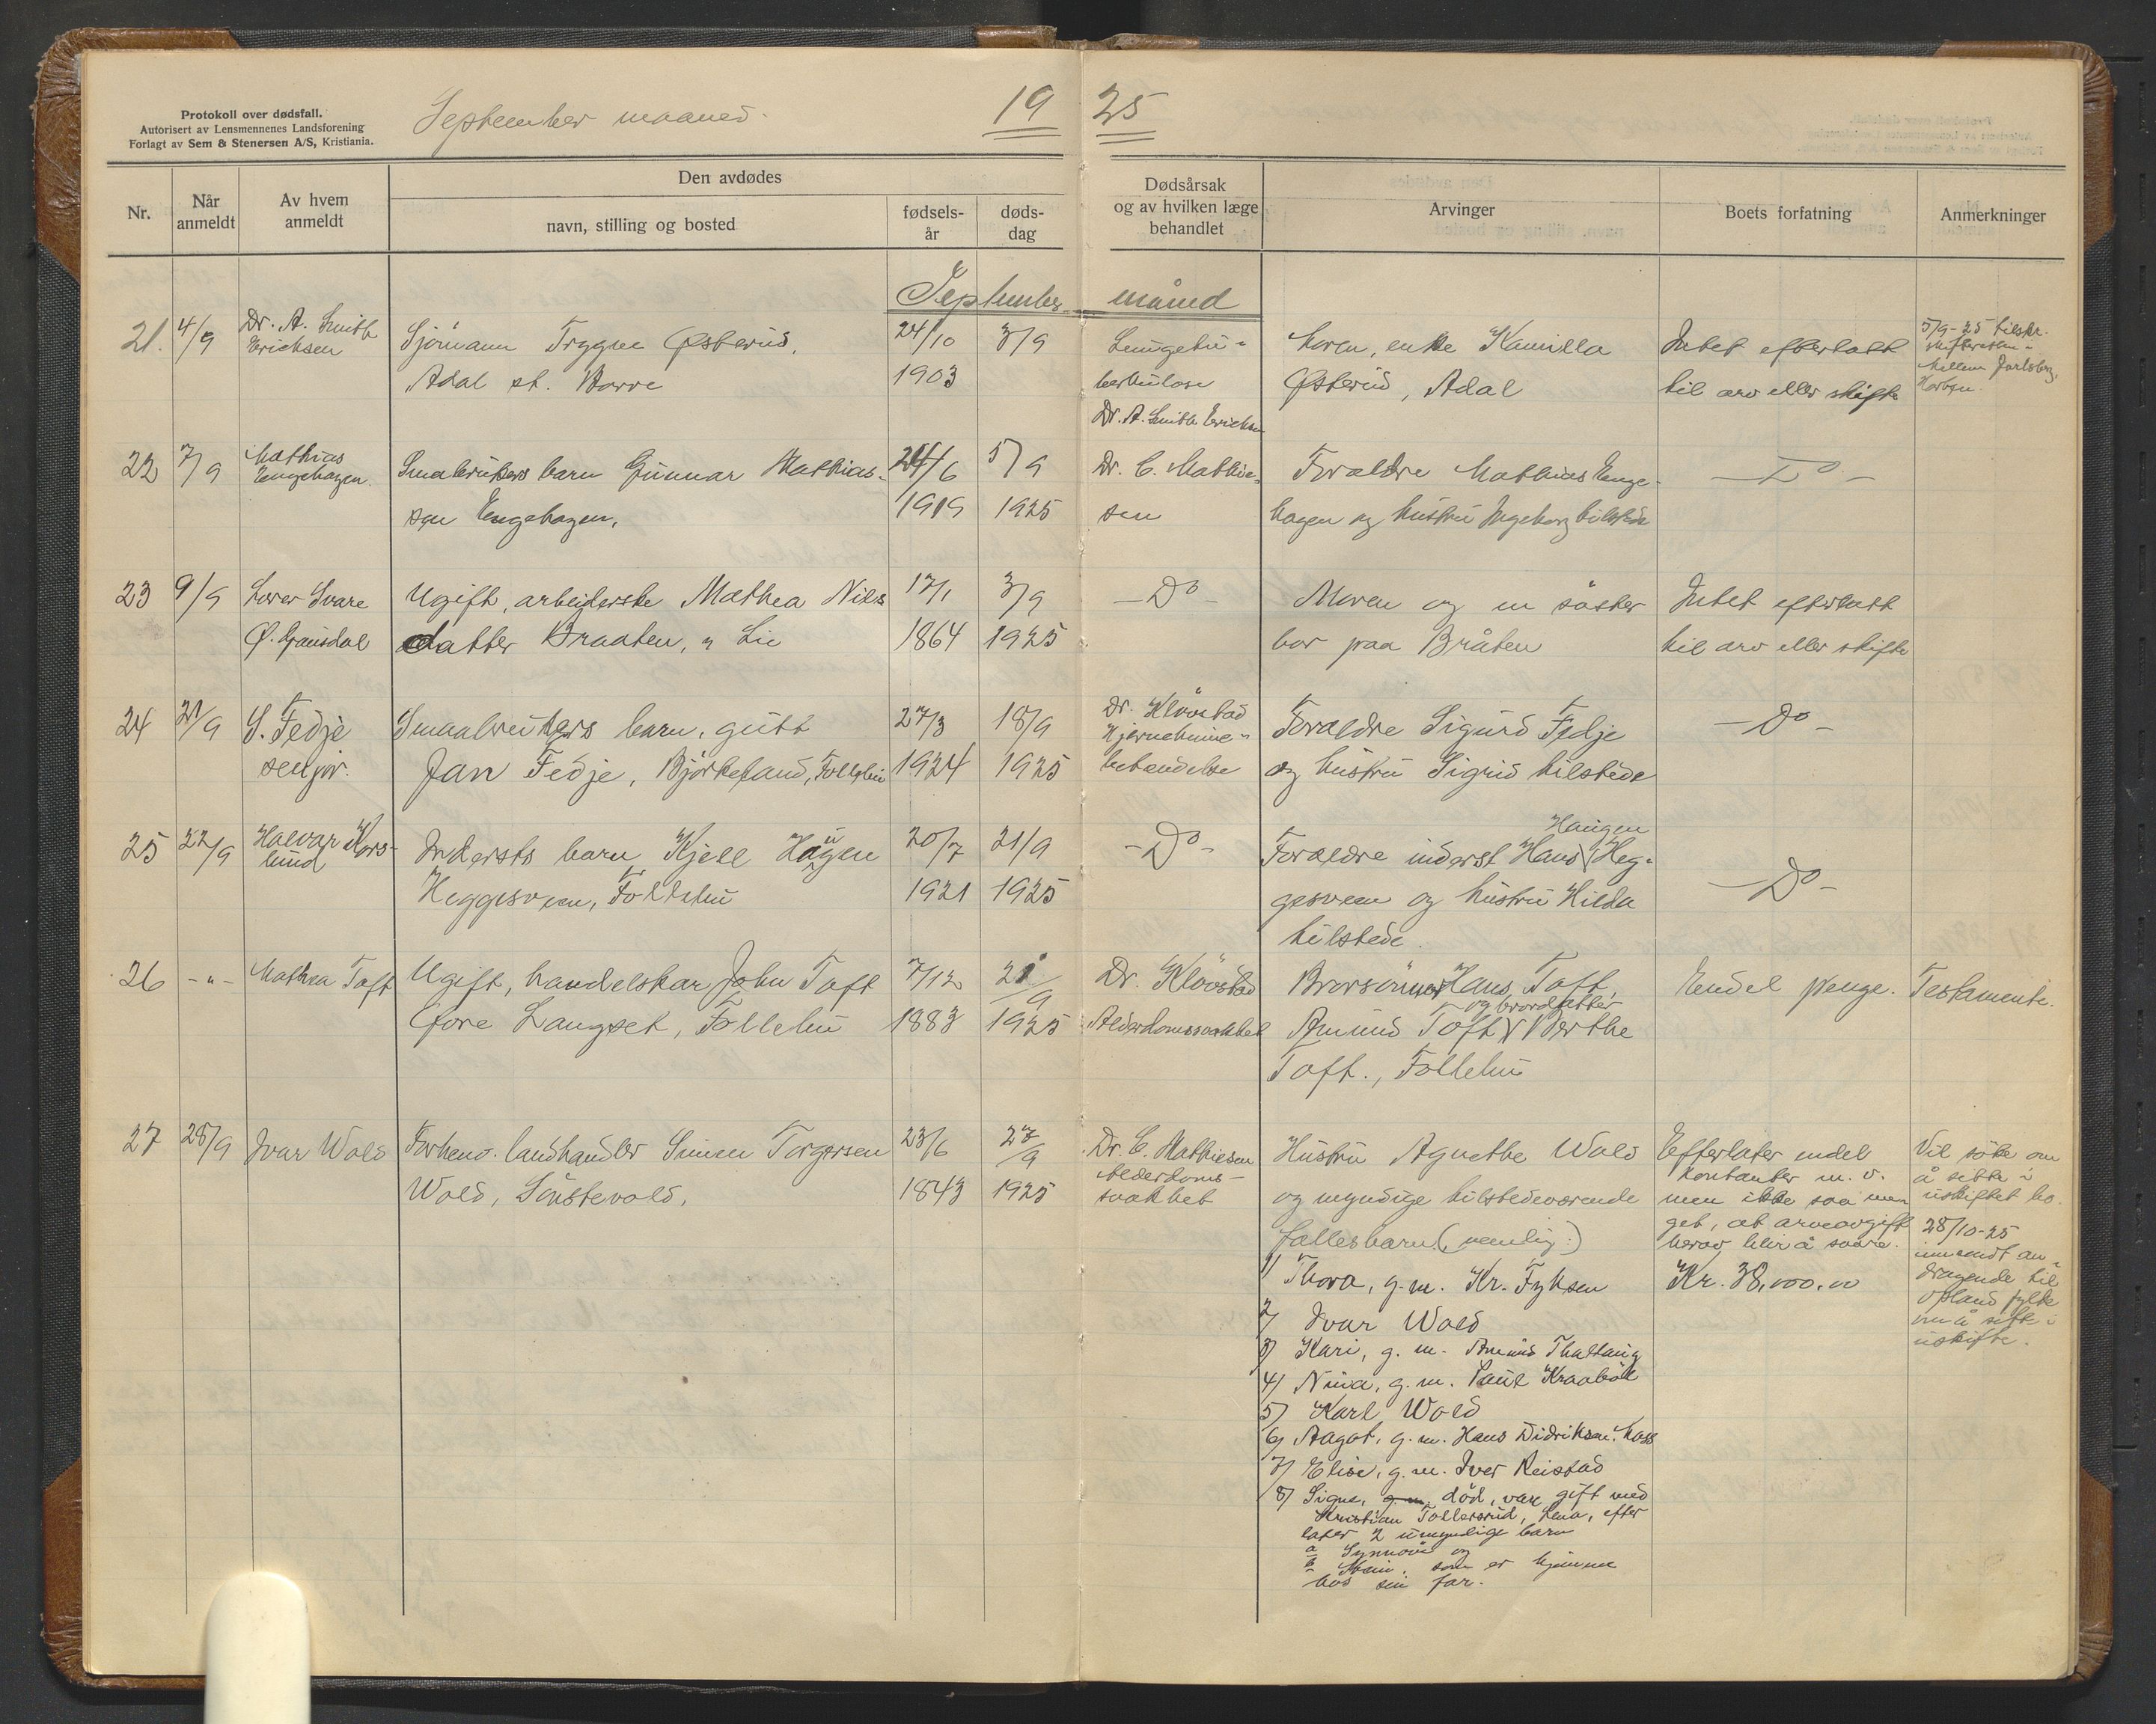 Protokoll over dødsfall.
Autorisert av Lensmennenes Landsforening
Forlagt av Sem & Stenersen A/S, Kristiania.
September maaned.
19 25
Nr.
Når anmeldt
Av hvem anmeldt
Den avdødes
navn, stilling og bosted
fødsels-år
døds-dag
Dødsårsak og av hvilken læge behandlet
Arvinger
Boets forfatning
Anmerkninger
September måned
21. 4/9
Dr. A. Smith
Erichsen
Sjömann Trygve Østerud,
Adal st. Borre
24/10
1903
3/9
Lungetu-
berkulose
Dr. A. Smith Erichsen
Moren, enke Kamilla
Østerud, Adal
Intet efterlatt
til arv eller skifte
5/9-25 tilskr.
Jarlsberg,
Horten
22 7/9
Mathias
Engehagen.
Smabrukers barn Gunnar Mathias-
sen Engehagen,
24/6
1919
5/9
1925
Dr. C. Mathie-
sen
Foraldre Mathias Enge-
hagen og hustru Ingeborg tilstede
- Do -
23 9/9
Lover Svare
Ø. Gausdal
Ugift, arbeiderske Mathea Nils
datter Braaten, " Lie
17/1
1864
3/9
1925
- Do -
Moren og en söster
bor paa Bråten
Intet efterlatt
til arv eller skifte
24 21/9
S. Fedje
senjor.
Smaabrukers barn, gutt
Jan Fedje, Björkelund, Follebu
27/3
1924
18/9
1925
Dr. Klövstad
Hjernehinne-
betendelse
Foraldre Sigurd Fedje
og hustru Sigrid tilstede
- Do -
25 22/9
Halvar Kors-
lund
Indersts barn Kjell Haugen
Heggesveen, Follebu
20/7
1921
21/9
1925
- Do -
Haugen
Foraeldre inderst Hans Heg-
gesveen og hustru Hilda
tilstede.
- Do -
26 - " -
Mathea Toft
Ugift, handelskar John Toft
Øore Langset, Follebu
7/12
1883
21/9
1925
Dr. Klövstad
Alderdomssvakhet
Brorsönner Hans Toft,
og brordatter
Amund Toft Berthe
Toft., Follebu
Endel penge.
Testamente.
27 28/9
Ivar Wold
Forhenv. landhandler Simen Torgersen
Wold, Sönstevold,
23/6
1843
27/9
1925
Dr. C. Mathiesen
Alderdoms-
svakhet
Hustru Agnethe Wold
og myndige tilstedeværende
fallesbarn (nemlig:)
1) Thora, g. m. Kr. Fyksen
2) Ivar Wold
3) Kari, g. m. Amund Thallaug
4) Nina, g. m. Paul Kraaböl
5) Karl Wold
6) Aagot, g. m. Hans Didriksen. Moss
7) Elise, g. m. Iver Reistad
8) Signe, g. m. död, var gift med
Kristian Tollersrud, Lena, efter
later 2 umyndige barn
a Synnöve og
b som er hjemme
hos sin far.
Efterlater endel
kontanter m. v.
men ikke saa me
get, at arveavgift
herav blir å svare.
Kr. 38,000.00
Vil söke om
å sitte i
uskiftet bo.
28/10-25
innsendt an-
dragende til
Opland fylke
om å sitte i
uskifte.